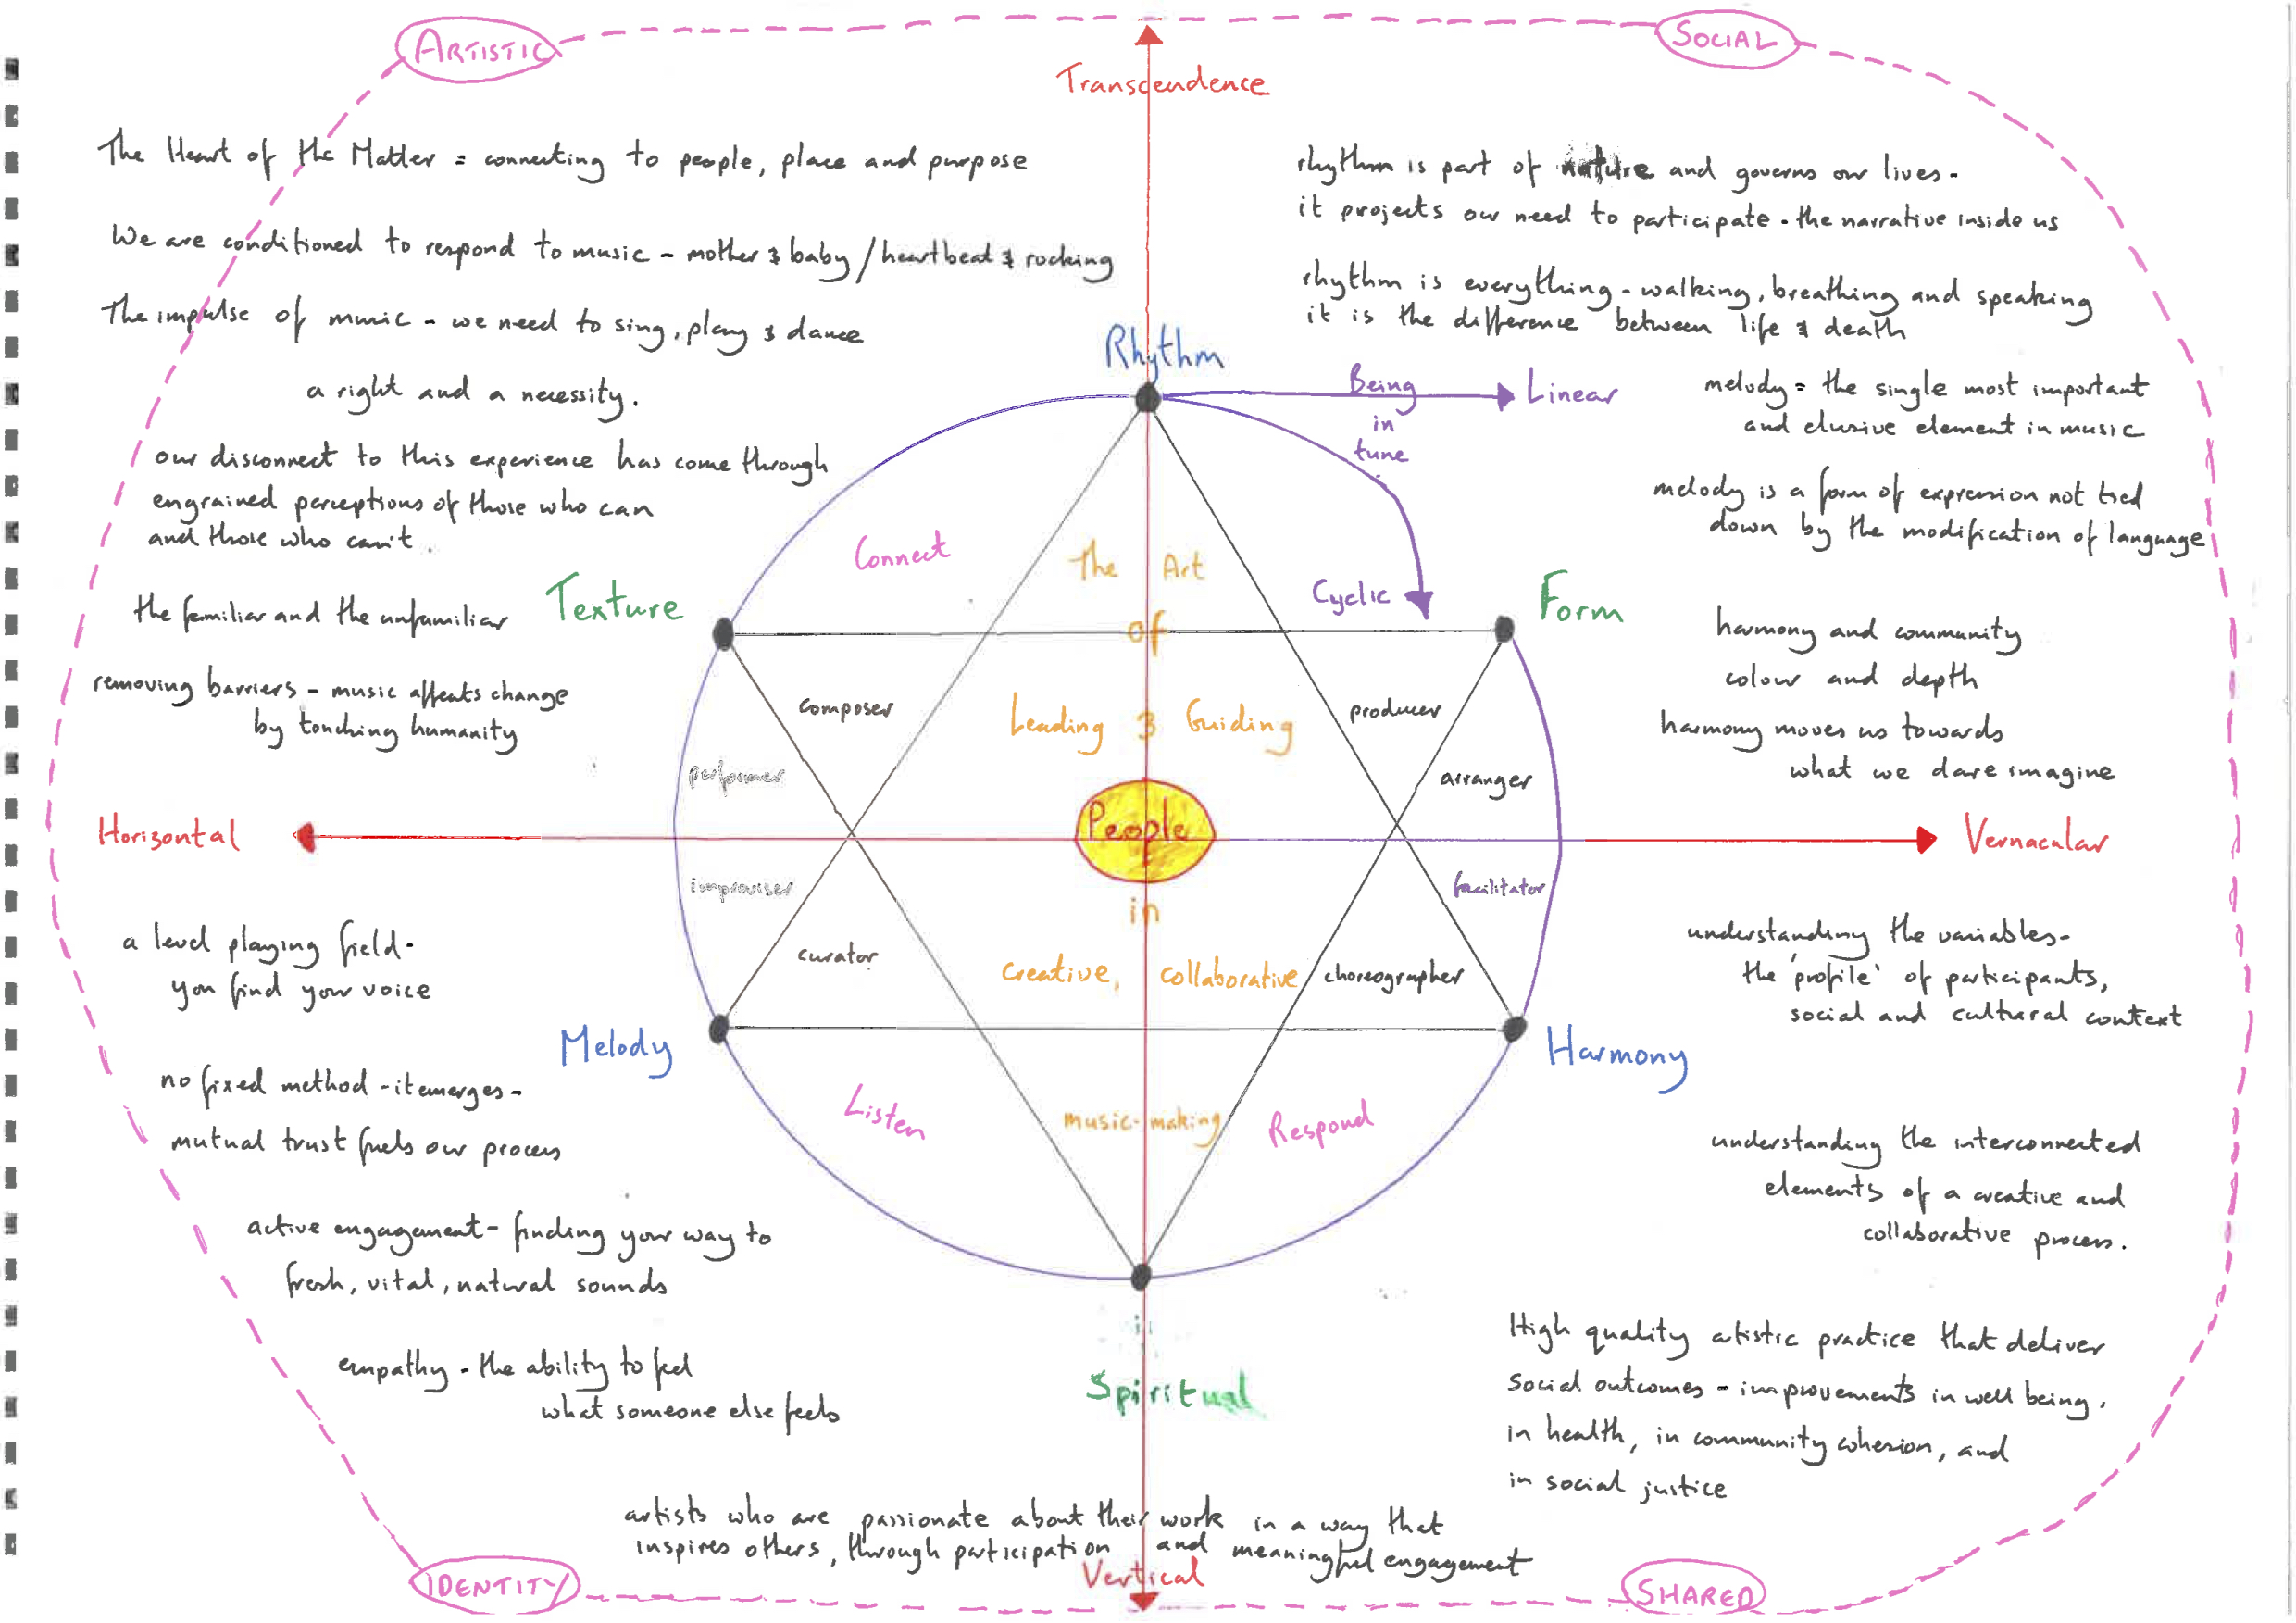 ARTISTIC
SOCIAL
Transcendence
The Heart of the Matter = connecting to people, place and purpose
We are conditioned to respond to music - mother & baby / heartbeat & rocking
The impulse of music - we need to sing, play & dance
a right and a necessity.
our disconnect to this experience has come through
engrained perceptions of those who can
and those who can't.
the familiar and the unfamiliar
removing barriers - music affects change
by touching humanity
rhythm is part of nature and governs our lives -
it projects our need to participate - the narrative inside us
rhythm is everything - walking, breathing and speaking
it is the difference between life & death
melody = the single most important
and elusive element in music
melody is a form of expression not tied
down by the modification of language
harmony and community
colour and depth
harmony moves us towards
what we dare imagine
Rhythm
Being
in
tune
Linear
Cyclic
Connect
Texture
Form
The Art
of
Leading & Guiding
People
in
creative, collaborative
music-making
composer
performer
improviser
curator
producer
arranger
facilitator
choreographer
Horizontal
Vernacular
Melody
Harmony
Listen
Respond
Spiritual
a level playing field -
you find your voice
no fixed method - it emerges -
mutual trust fuels our process
active engagement - finding your way to
fresh, vital, natural sounds
empathy - the ability to feel
what someone else feels
understanding the variables -
the 'profile' of participants,
social and cultural context
understanding the interconnected
elements of a creative and
collaborative process.
High quality artistic practice that deliver
social outcomes - improvements in well being,
in health, in community cohesion, and
in social justice
artists who are passionate about their work in a way that
inspires others, through participation and meaningful engagement
Vertical
IDENTITY
SHARED